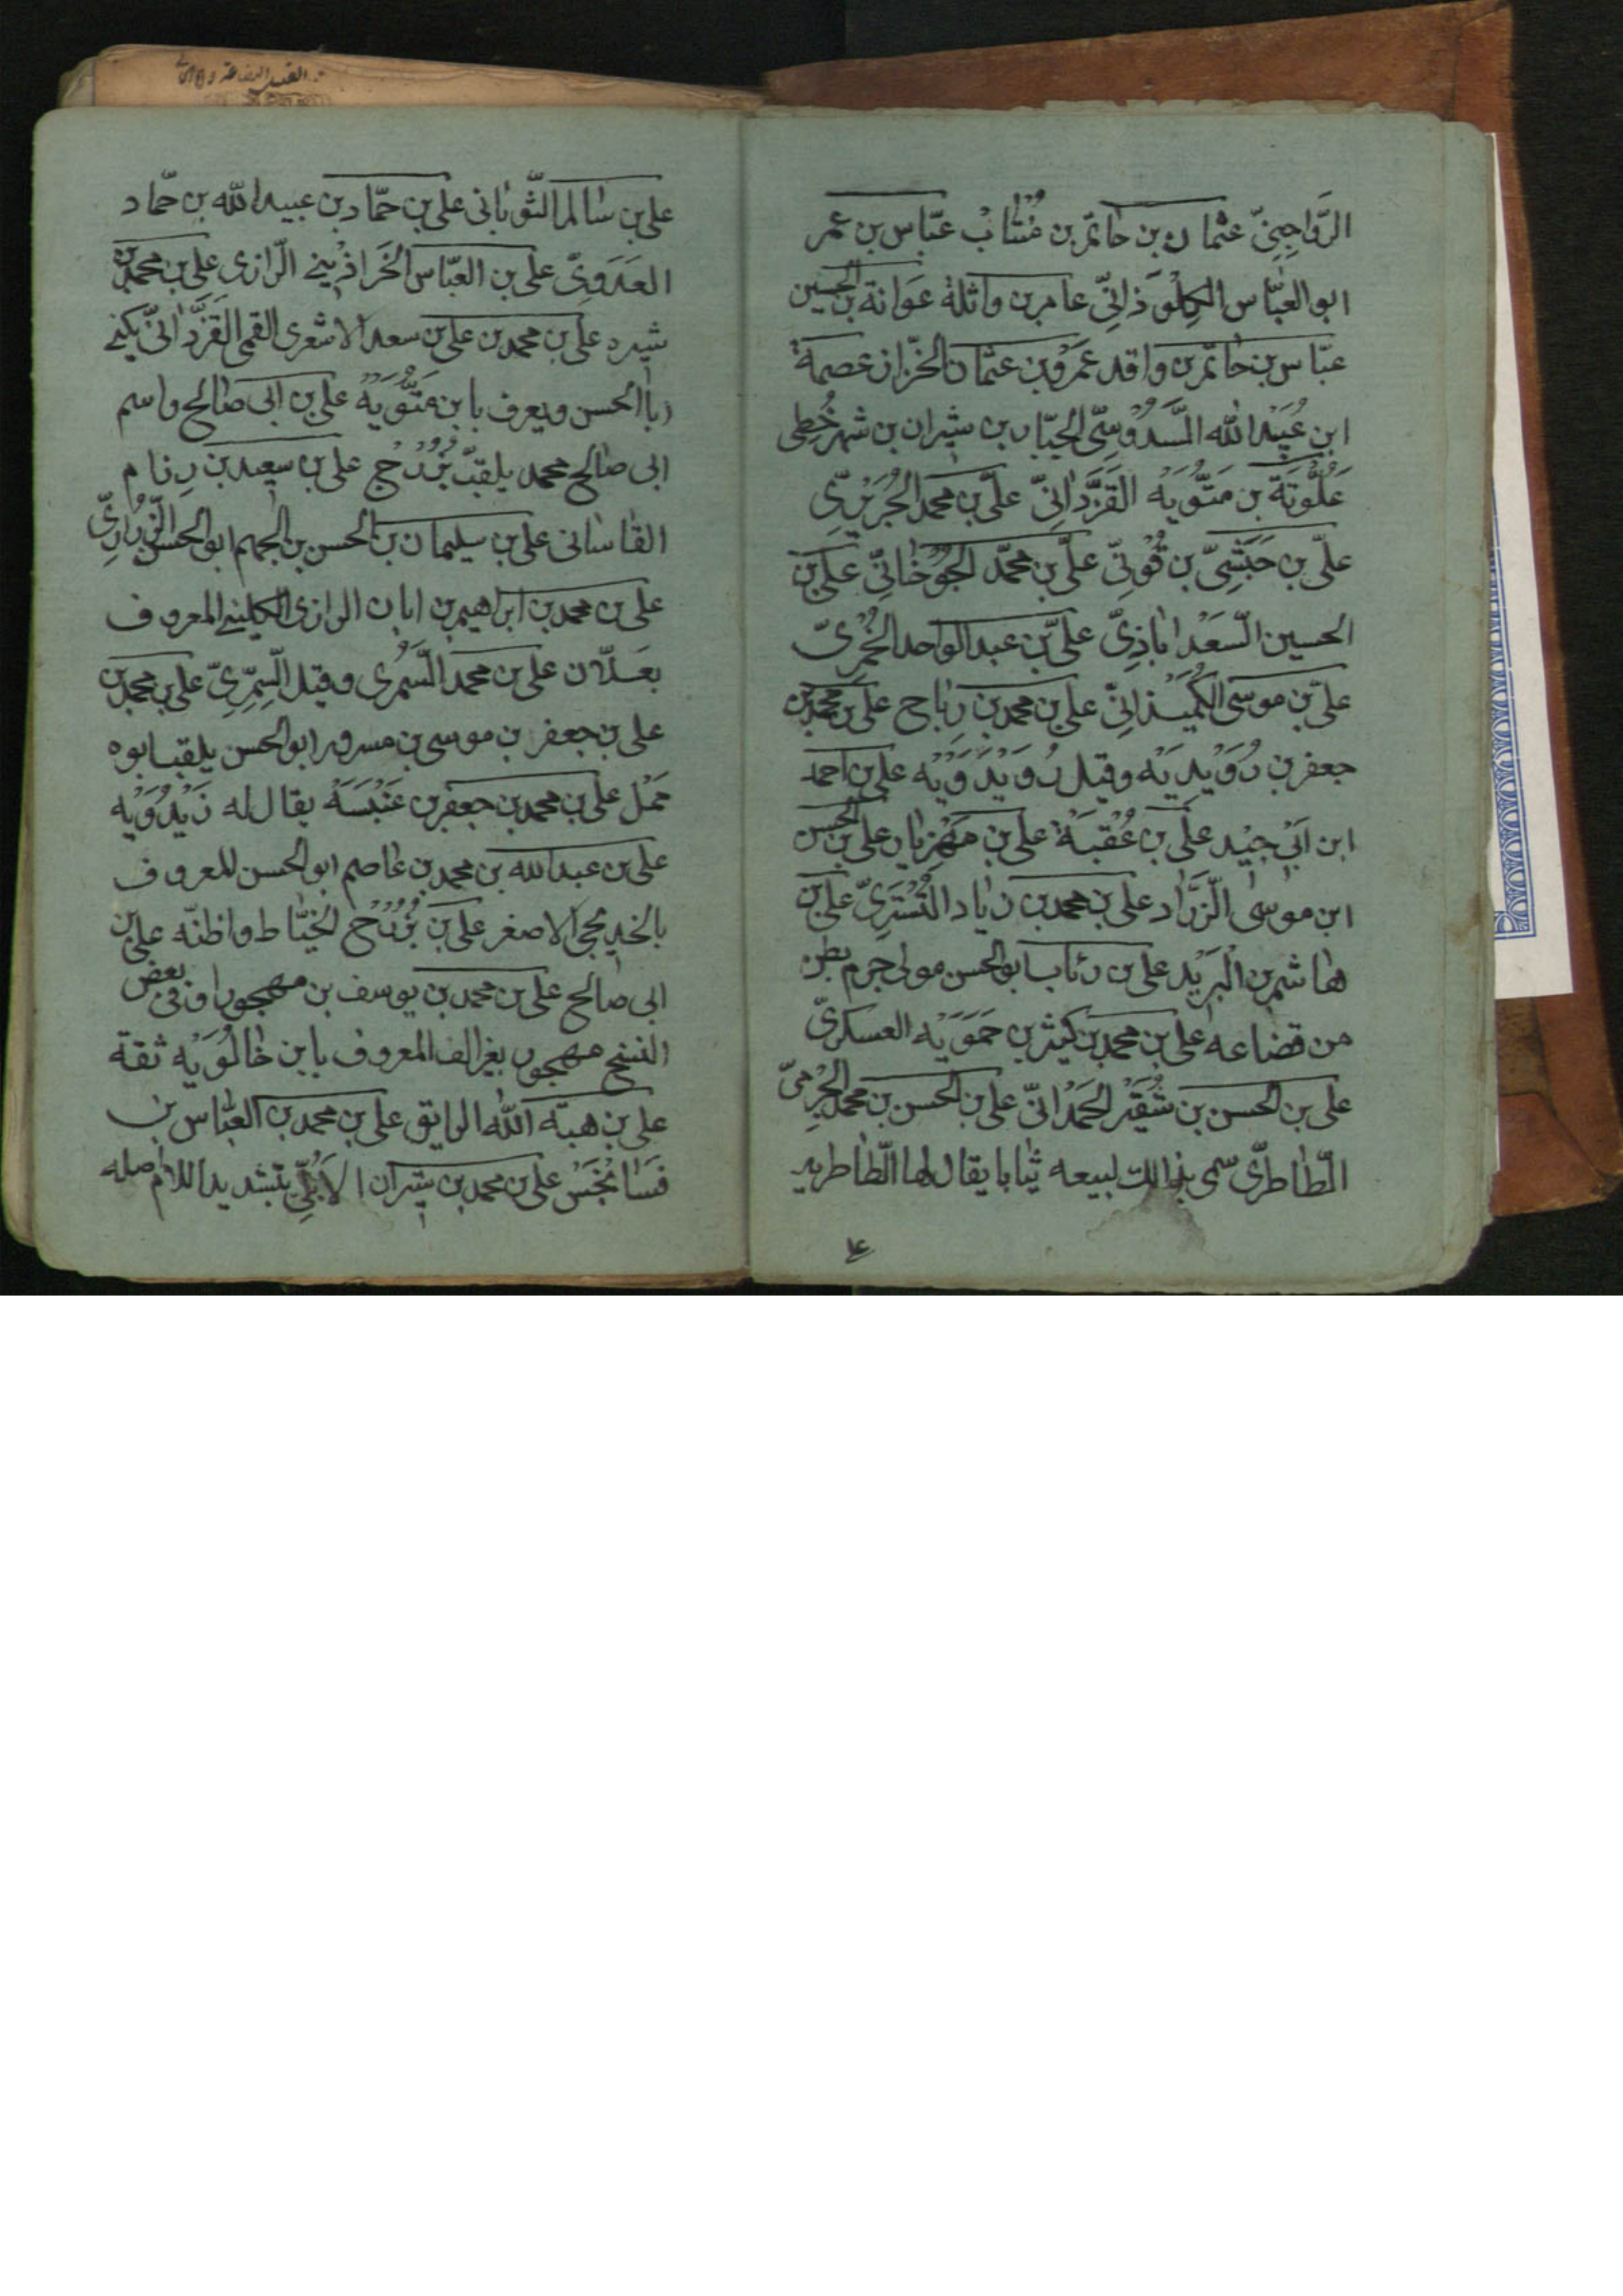 الرَّوَاجِنِىّ عثمان بن حاتم بن مُنْتَاب عبّاس بن عمر
ابو العبّاس الكِلْوَذانىّ عامر بن واثلة عَوَانة بن الحسين
عبّاس بن حاتم بن واقد عَمْرو بن عثمان الخزّاز عصمة
ابن عُبَيْد الله السَّدُوسِىّ الجبّار بن شيران بن شهر خُطى
عَلُّوَيَة بن مَتُّوَيْه القَزْدَانِىّ علىّ بن محمد الجُرَيْرِىّ
علىّ بن حَبَشِىّ بن قُونِىّ علىّ بن محمّد الجُوخَانِىّ على بن
الحسين السّعَدْاباذِىّ علىّ بن عبد الواحد الخُمْرِىّ
علىّ بن موسى الكُمَيْذانِىّ على بن محمد بن رِيَاح على بن محمد بن
جعفر بن رُوَيْدِيَه وقيل رُوَيْدَوَيْه على بن احمد
ابن ابى جِيْد علىّ بن عُقْبَة على بن مَهْزِيَار على بن الحسن
ابن موسى الزَّرَّاد على بن محمد بن زياد التُسْتَرِىّ على بن
هاشم بن البَرِيْد على بن رئاب ابو الحسن مولى جرم بطن
من قضاعه على بن محمد بن كيثر بن حَمَوَيْه العسكرىّ
على بن الحسن بن شُقَيْر الهَمْدانىّ على بن الحسن بن محمد الجَرْمِىّ
الطّاطرىّ سمى بذالك لبيعه ثيابا يقال لها الطّاطريه
على بن سالم الثّوبانى على بن حمّاد بن عبيد الله بن حمّاد
العَدَوِىّ على بن العبّاس الخَرَاذِينى الرّازى على بن محمد بن
شيره على بن محمد بن على بن سعد الاشعرى القمى القَزْدَانىّ يكنى
ابا الحسن ويعرف بابن مَتُّوَيْه على بن ابى صالح واسم
ابى صالح محمد يلقّب بُزُرْج على بن سعيد بن رِزام
القاسانى على بن سليمان بن الحسن بن الجهم ابو الحسن الزُرَارِىّ
على بن محمد بن ابراهيم بن ابان الرازى الكلينى المعروف
بعَلّان على بن محمد السَّمُرى وقيل السِّمَّرِىّ على بن محمد بن
على بن جعفر بن موسى بن مسرور ابو الحسن يلقب ابوه
مَمْلَ على بن محمد بن جعفر بن عَنْبَسَة يقال له زَيْدُوَيْه
على بن عبد الله بن محمد بن عاصم ابو الحسن المعروف
بالخديجى الاصغر على بن بُزُرْج الخيّاط واظنّه على بن
ابى صالح على بن محمد بن يوسف بن مهجور او فى بعض
النسخ مهجور بغير الف المعروف بابن خالُوَيْه ثقة
على بن هبة الله الرايق على بن محمد بن العبّاس بن
فَسَانْجُسْ على بن محمد بن شيران الاُبُلّى بتشديد اللام اصله